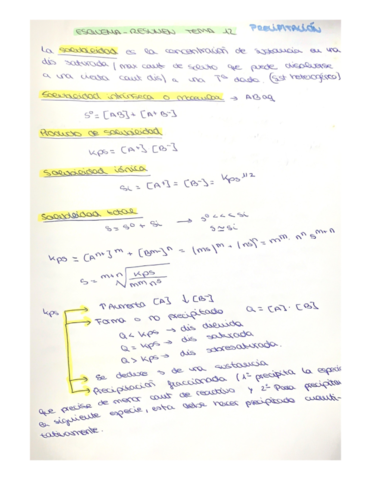 ESQUEMA-RESUMEN TEMA 12 PRECIPITACIÓN
La solubilidad es la concentración de sustancia en una
dis saturada / max cant de soluto que puede disolverse
a una cierta cant dis) a una Tª dada (sist heterogéneo)
Solubilidad intrínseca o molecular → ABaq
Sº = [AB] + [A+B-]
Producto de solubilidad
Kps = [A+] [B-]
Solubilidad iónica
Si = [A+] = [B-] = Kps 1/2
Solubilidad total
S = Sº + Si → Sº <<< Si
S ≃ Si
Kps = [An+]m + [Bm-]n = (ms)m + (ns)n = mm · nn sm+n
S = m+n√ Kps / mm nn
Kps → ↑ Aumenta [A] ↓ [B-]
→ Forma o no precipitado Q = [A] · [B]
Q < Kps → dis diluida
Q = Kps → dis saturada
Q > Kps → dis sobresaturada.
→ Se deduce s de una sustancia
→ Precipitación fraccionada (1º precipita la especie
que precise de menor cant de reactivo y 2º Para precipitar
la siguiente especie, esta debe haber precipitado cuanti-
tativamente.